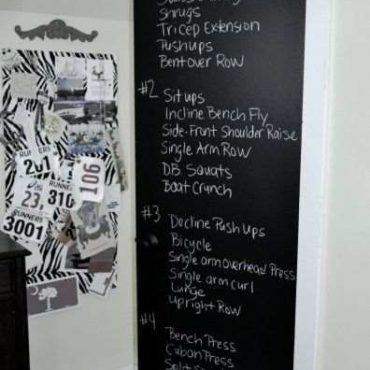 Shrugs
Tricep Extension
Pushups
Bentover Row
#2 Situps
Incline Bench Fly
Side-Front Shoulder Raise
Single Arm Row
DB Squats
Boat Crunch
#3 Decline Push Ups
Bicycle
Single arm overhead Press
Single arm curl
Lunge
Upright Row
#4 Bench Press
Cuban Press
201
RUNNERS
23
310
RUNNERS
106
3001